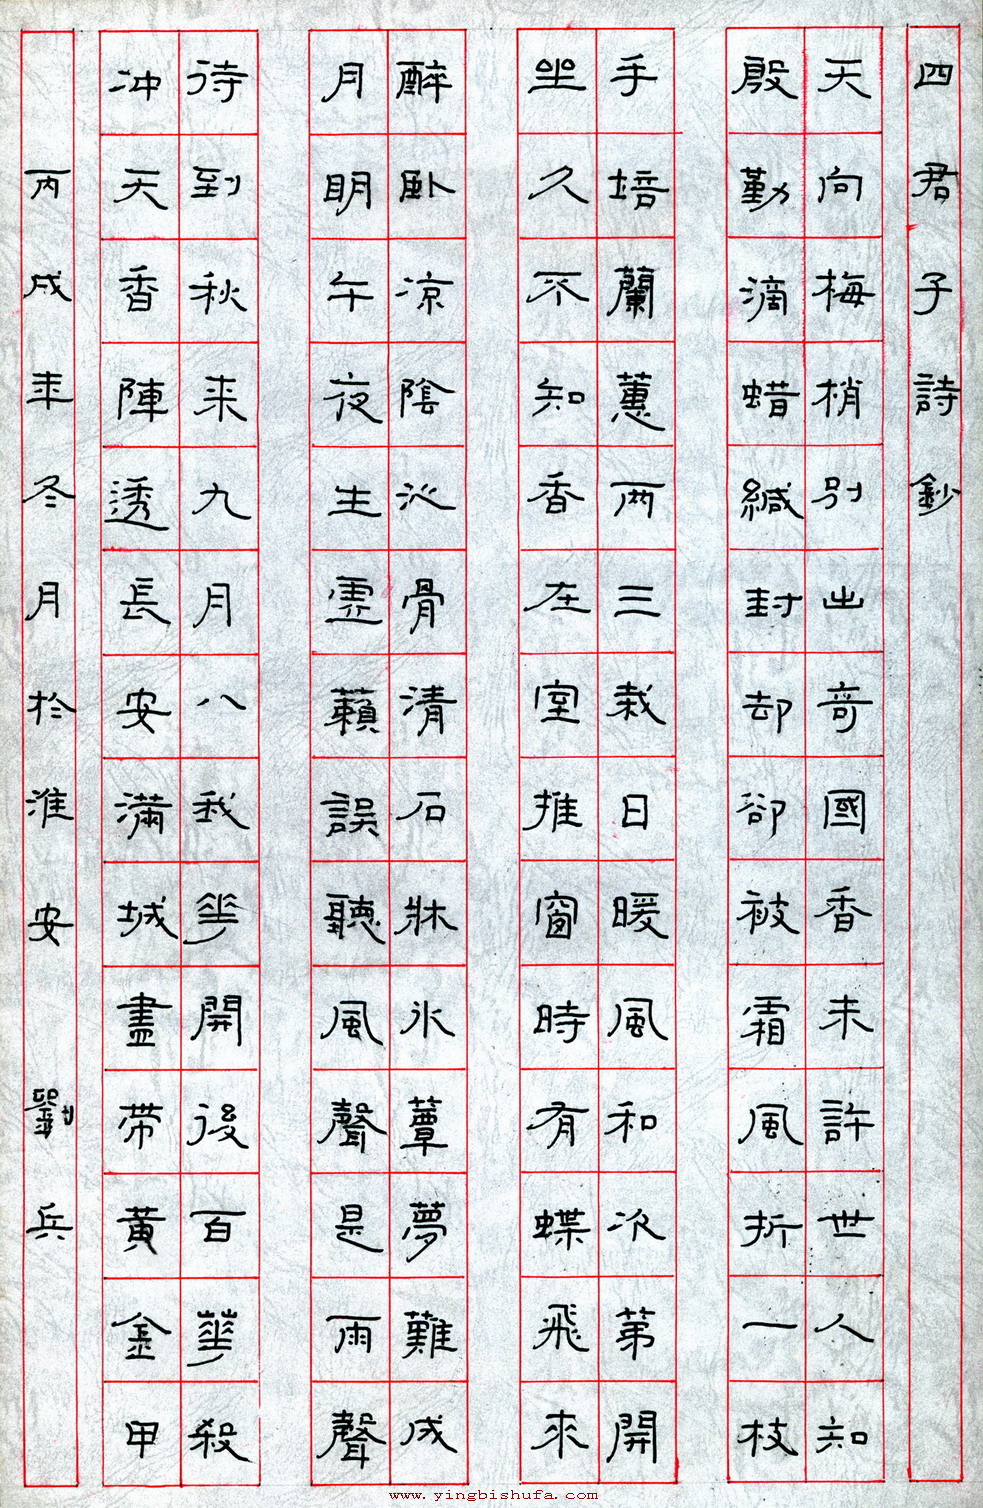 四君子詩鈔
天向梅梢別出奇國香未許世人知
殷勤滴蜡緘封却卻被霜風折一枝
手培蘭蕙兩三栽日暖風和次第開
坐久不知香在室推窗時有蝶飛來
醉卧凉陰沁骨清石牀氷蕈夢難成
月明午夜生虛籟誤聽風聲是雨聲
待到秋来九月八我華開後百華殺
冲天香陣透長安滿城盡带黄金甲
丙戌年冬月於淮安 劉兵
www.yingbishufa.com